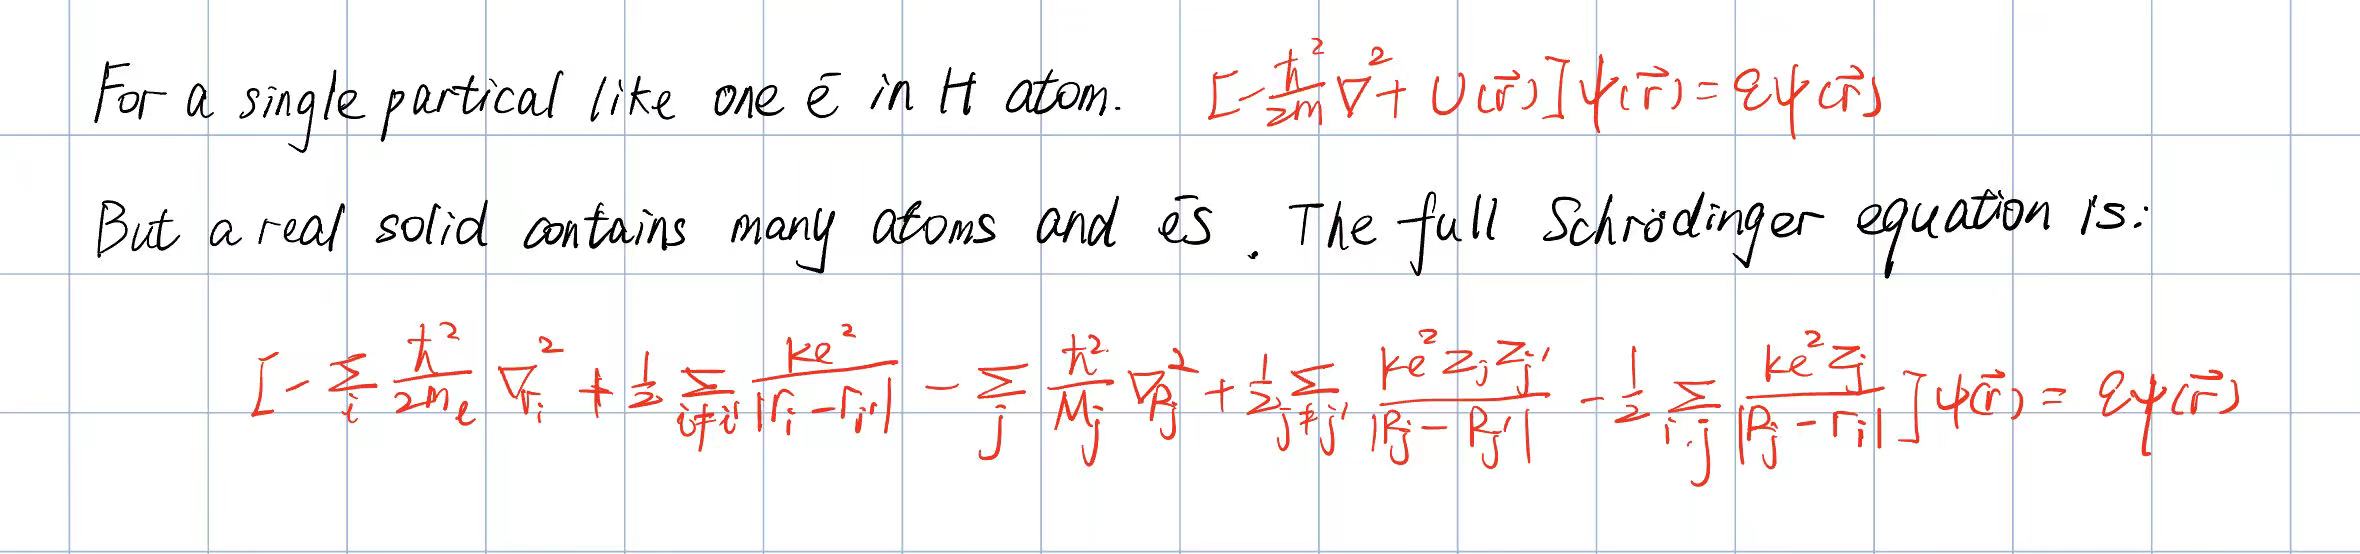 For a single partical like one ē in H atom. [-ħ²/2m ∇² + U(r⃗)]ψ(r⃗) = εψ(r⃗)
But a real solid contains many atoms and ēs. The full Schrödinger equation is:
[-∑_i ħ²/2m_e ∇_{r_i}² + 1/2 ∑_{i≠i'} ke²/|r_i - r_{i'}| - ∑_j ħ²/M_j ∇_{R_j}² + 1/2 ∑_{j≠j'} ke²Z_jZ_{j'}/|R_j - R_{j'}| - 1/2 ∑_{i,j} ke²Z_j/|R_j - r_i|]ψ(r⃗) = εψ(r⃗)